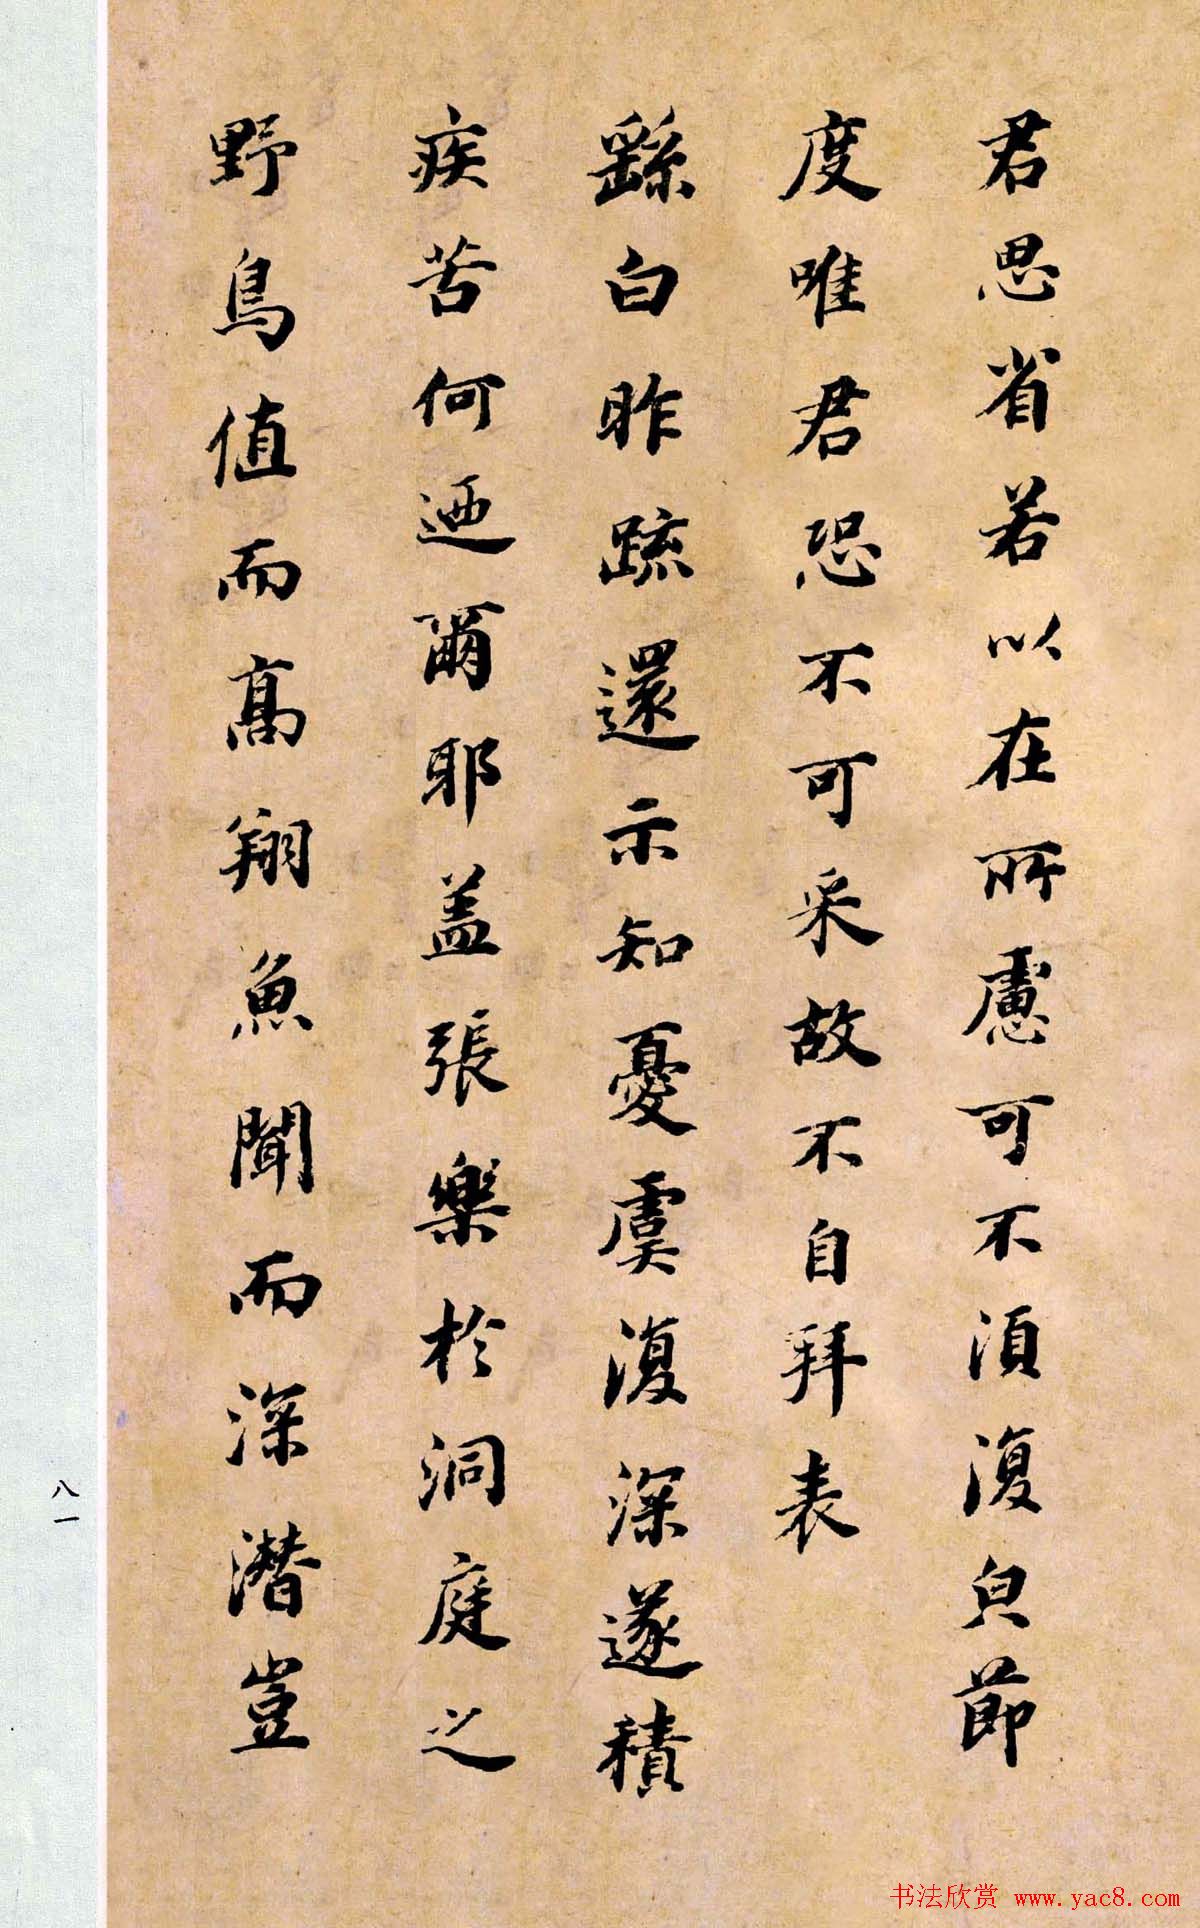 君思省若以在所慮可不湏復皃節
度唯君恐不可采故不自拜表
繇白昨疏還示知憂虞復深遂積
疾苦何迺爾耶盖張樂於洞庭之
野鳥值而髙翔魚聞而深潛豈
八一
书法欣赏 www.yac8.com